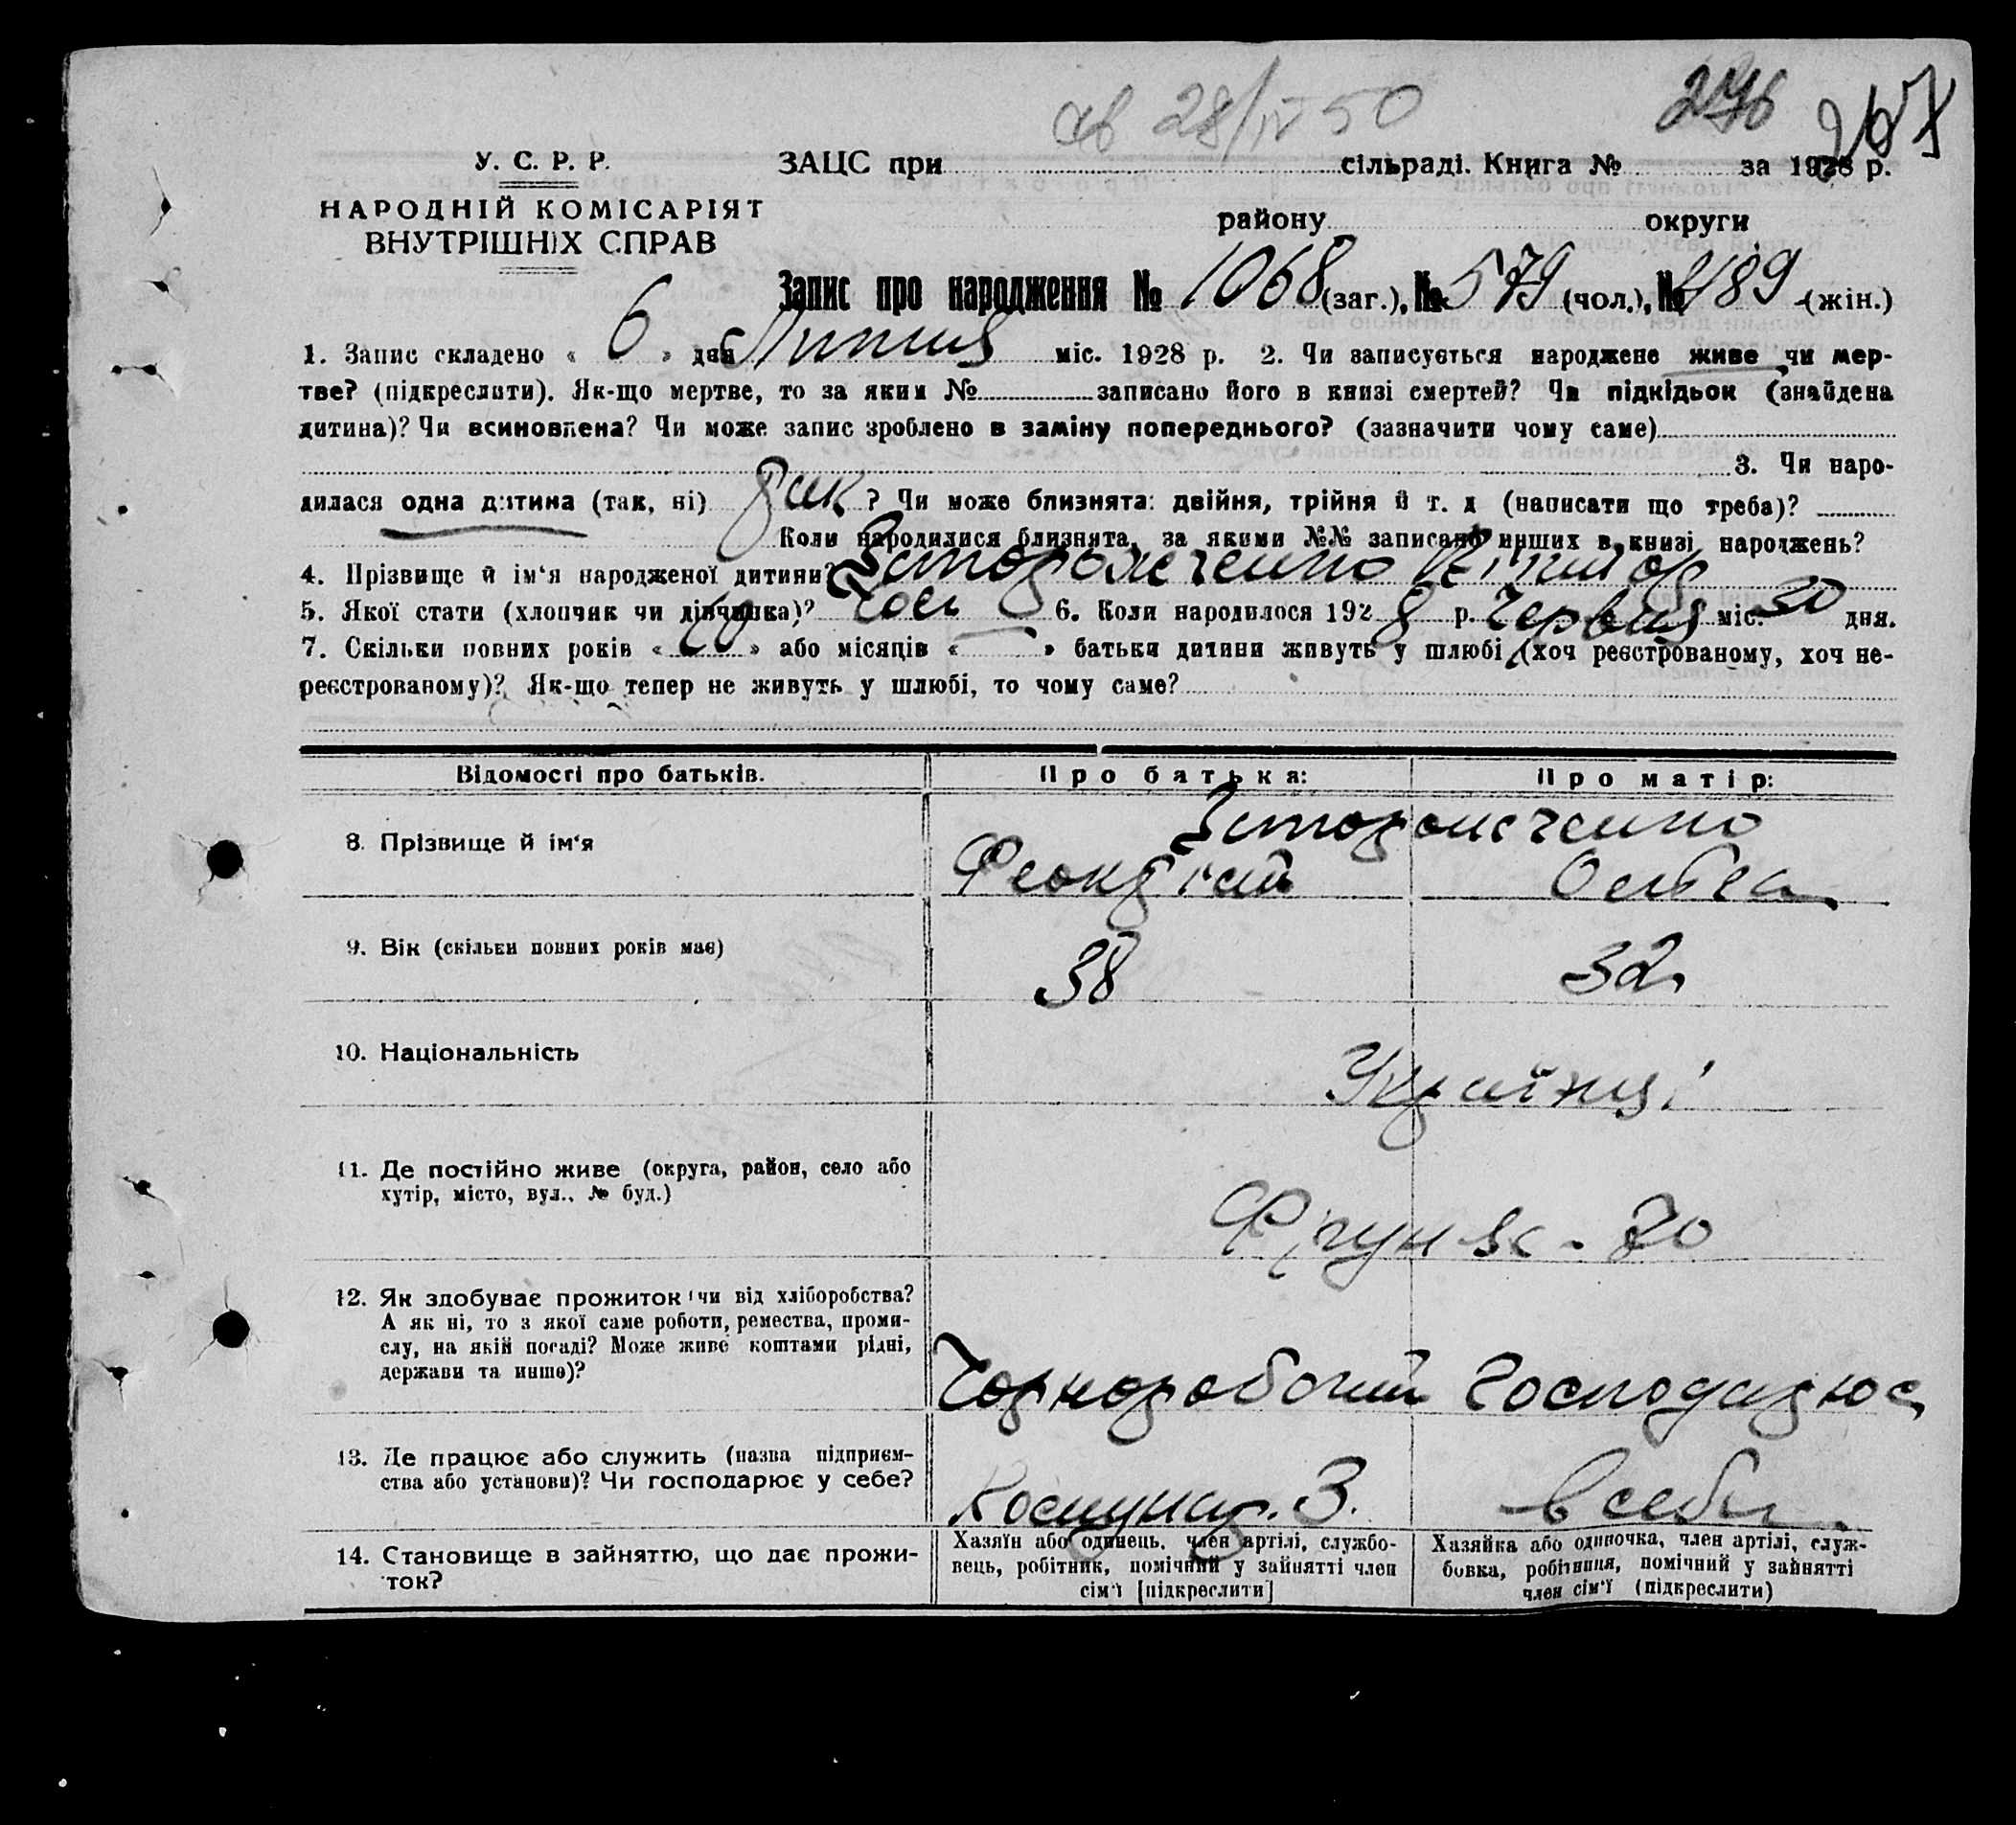 28/IV 50
276 267
У. С. Р. Р. ЗАЦС при сільраді. Книга № за 1928 р.
НАРОДНІЙ КОМІСАРІЯТ
ВНУТРІШНІХ СПРАВ
району округи
Запис про народження № 1068 (заг.), № 579 (чол.), № 489 (жін.)
1. Запис складено « 6 » дня Липня міс. 1928 р. 2. Чи записується народжене живе чи мер-
тве? (підкреслити). Як-що мертве, то за яким № записано його в книзі смертей? Чи підкідьок (знайдена
дитина)? Чи всиновлена? Чи може запис зроблено в заміну попереднього? (зазначити чому саме)
3. Чи наро-
дилася одна дитина (так, ні) так ? Чи може близнята: двійня, трійня й т. д (написати що треба)?
Коли народилися близнята, за якими №№ записано инших в книзі народжень?
4. Прізвище й ім'я народженої дитини? Запорожченко
5. Якої стати (хлопчик чи дівчинка)? 6. Коли народилося 1928 р. Червня міс. 30 дня.
7. Скільки повних років « 10 » або місяців « » батьки дитини живуть у шлюбі (хоч реєстрованому, хоч не-
реєстрованому)? Як-що тепер не живуть у шлюбі, то чому саме?
Відомості про батьків. Про батька: Про матір:
8. Прізвище й ім'я Запорожченко
9. Вік (скільки повних років має) 38 32
10. Національність Українці
11. Де постійно живе (округа, район, село або
хутір, місто, вул., № буд.) Фрунзе - 70
12. Як здобуває прожиток (чи від хліборобства?
А як ні, то з якої саме роботи, ремества, проми-
слу, на якій посаді? Може живе коштами рідні,
держави та инше)? Чорноробочий Господарює
13. Де працює або служить (назва підприєм-
ства або установи)? Чи господарює у себе? Комунар. З. в себе
14. Становище в зайняттю, що дає прожи-
ток?
Хазяїн або одинець, член артілі, службо-
вець, робітник, помічний у зайнятті член
сім'ї [підкреслити]
Хазяйка або одиночка, член артілі, служ-
бовка, робітниця, помічний у зайнятті
член сім'ї (підкреслити)